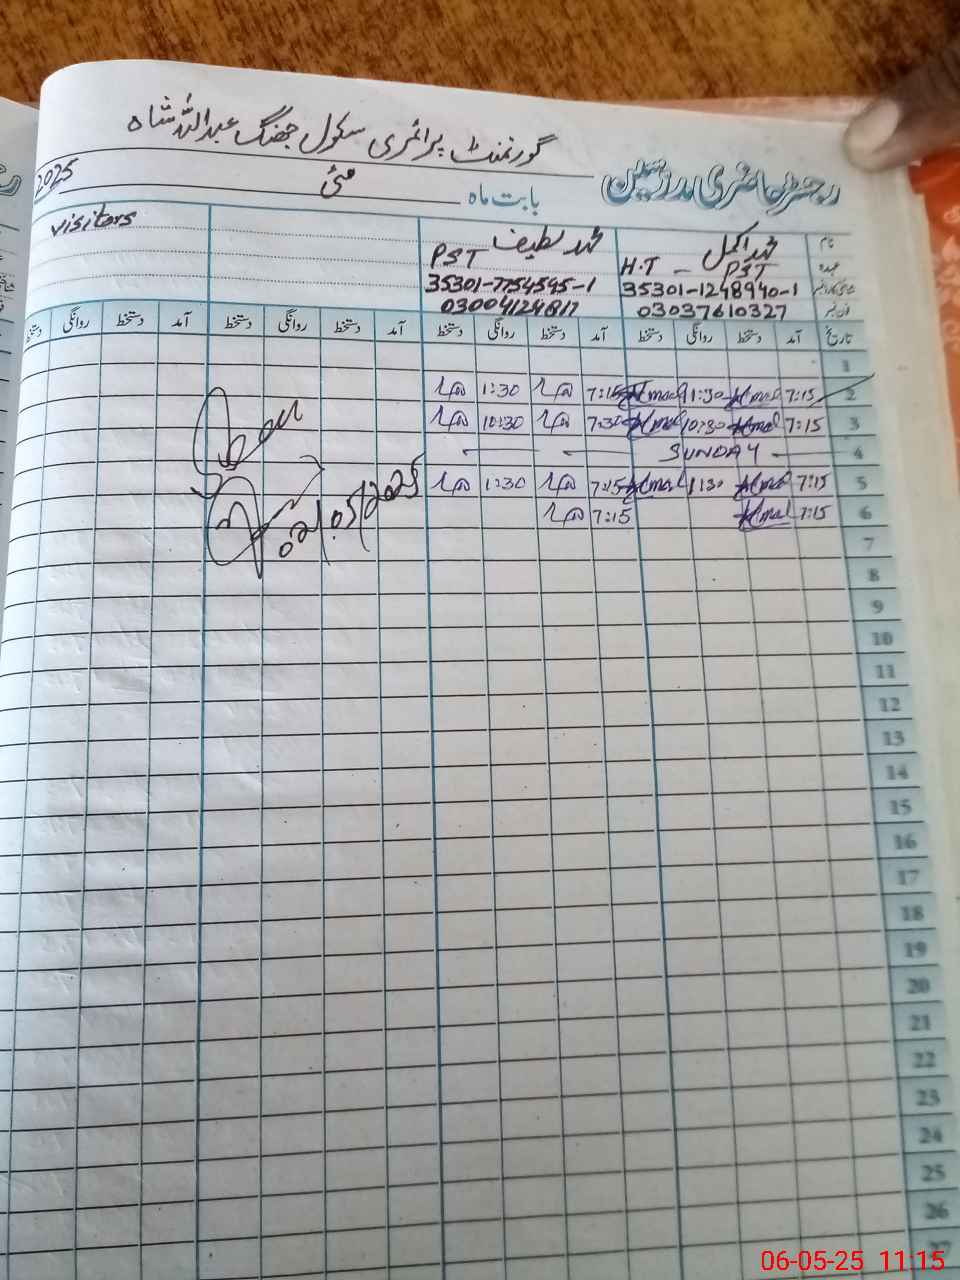 گورنمنٹ پرائمری سکول جھنگ عبداللہ شاہ
رجسٹر حاضری مدرسین
بابت ماہ مئی 2025
نام محمد اکمل محمد لطیف visitors
عہدہ H.T - PST PST
35301-1248940-1 35301-7754595-1
فون نمبر 03037610327 03004124817
تاریخ آمد دستخط روانگی دستخط آمد دستخط روانگی دستخط آمد دستخط روانگی دستخط آمد دستخط روانگی دستخط
1
2 7:15 Akmal 1:30 Akmal 7:15 1:30
3 7:15 Akmal 10:30 Akmal 7:30 10:30
4 SUNDAY
5 7:15 Akmal 1:30 Akmal 7:15 1:30
6 7:15 Akmal 7:15
02/05/2025
7
8
9
10
11
12
13
14
15
16
17
18
19
20
21
22
23
24
25
26
27
06-05-25 11:15